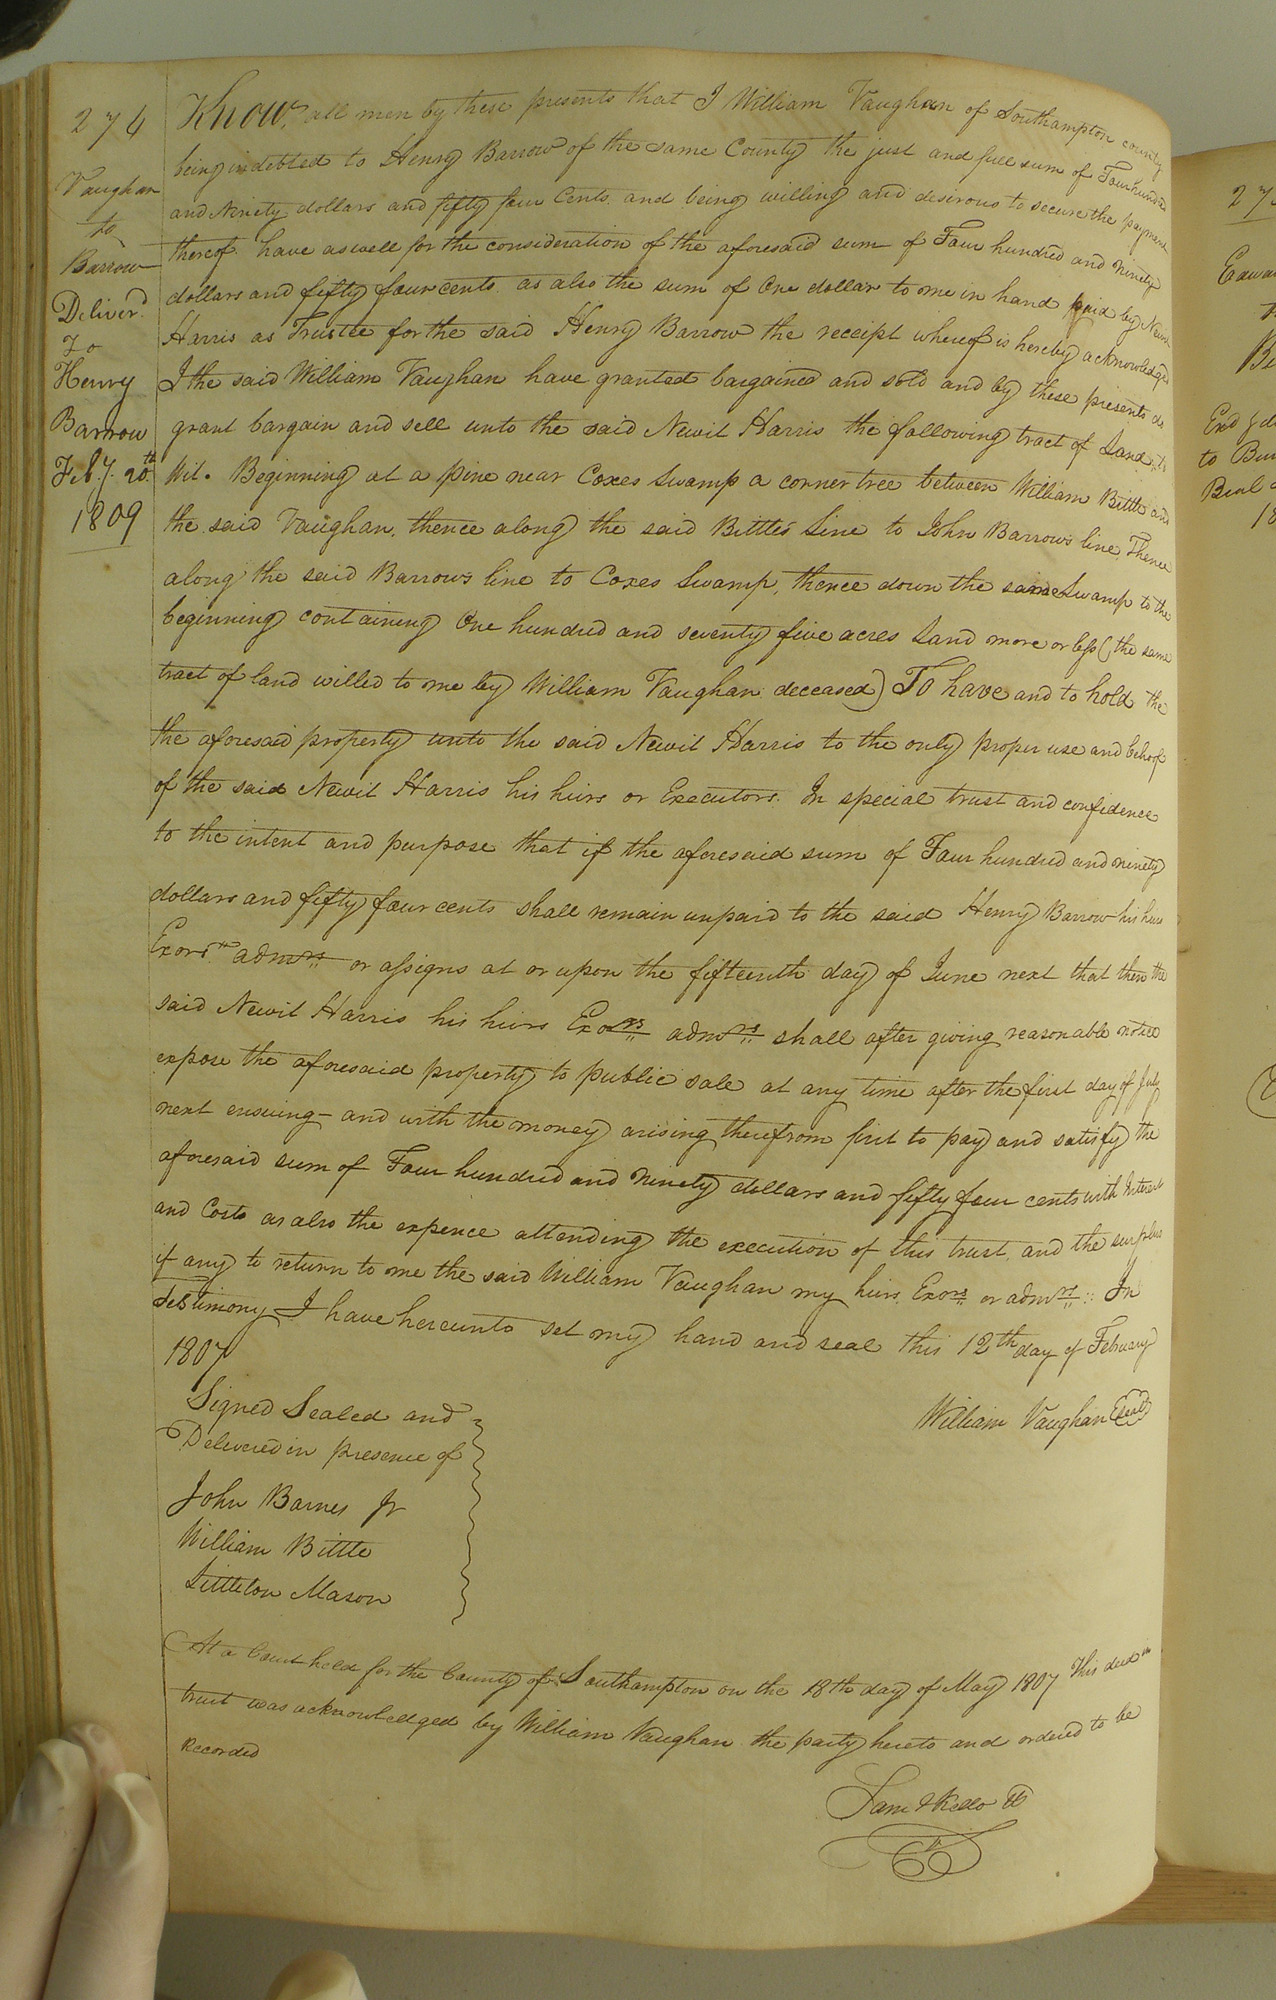 274
Vaughan
to
Barrow
Deliver.d
To
Henry
Barrow
Feb.y. 20th
1809
Know, all men by these presents that I William Vaughan of Southampton county
being indebted to Henry Barrow of the same County the just and full sum of Four hundred
and Ninety dollars and fifty four Cents. and being willing and desirous to secure the payment
thereof. have aswell for the consideration of the aforesaid sum of Four hundred and ninety
dollars and fifty four cents. as also the sum of One dollar to me in hand paid by Newit
Harris as Trustee for the said Henry Barrow the receipt whereof is hereby acknowledged
I the said William Vaughan have granted bargained and sold and by these presents do
grant bargain and sell unto the said Newit Harris the following tract of Land, to
Wit. Beginning at a pine near Coxes Swamp a corner tree between William Bittle and
the said Vaughan, thence along the said Bittles Line to John Barrows line, Thence
along the said Barrows line to Coxes Swamp, thence down the same Swamp to the
beginning containing One hundred and seventy five acres Land more or less (the same
tract of land willed to me by William Vaughan deceased) To have and to hold the
the aforesaid property unto the said Newit Harris to the only proper use and behoof
of the said Newit Harris his heirs or Executors. In special trust and confidence
to the intent and purpose that if the aforesaid sum of Four hundred and ninety
dollars and fifty four cents shall remain unpaid to the said Henry Barrow his heirs
Exors. admrs or assigns at or upon the fifteenth day of June next that then the
said Newit Harris his heirs Exors admrs shall after giving reasonable notice
expose the aforesaid property to public sale at any time after the first day of July
next ensuing - and with the money arising therefrom first to pay and satisfy the
aforesaid sum of Four hundred and Ninety dollars and fifty four cents with Interest
and Costs as also the expence attending the execution of this trust. and the surplus
if any to return to me the said William Vaughan my heirs Exors or admrs: In
Testimony I have hereunto set my hand and seal this 12th day of February
1807
William Vaughan (Seal)
Signed Sealed and
Delivered in presence of
John Barnes Jr
William Bittle
Littleton Mason
At a Court held for the County of Southampton on the 18th day of May 1807 This deed in
trust was acknowledged by William Vaughan the party hereto and ordered to be
Recorded
Saml Kello
27
to
to
18